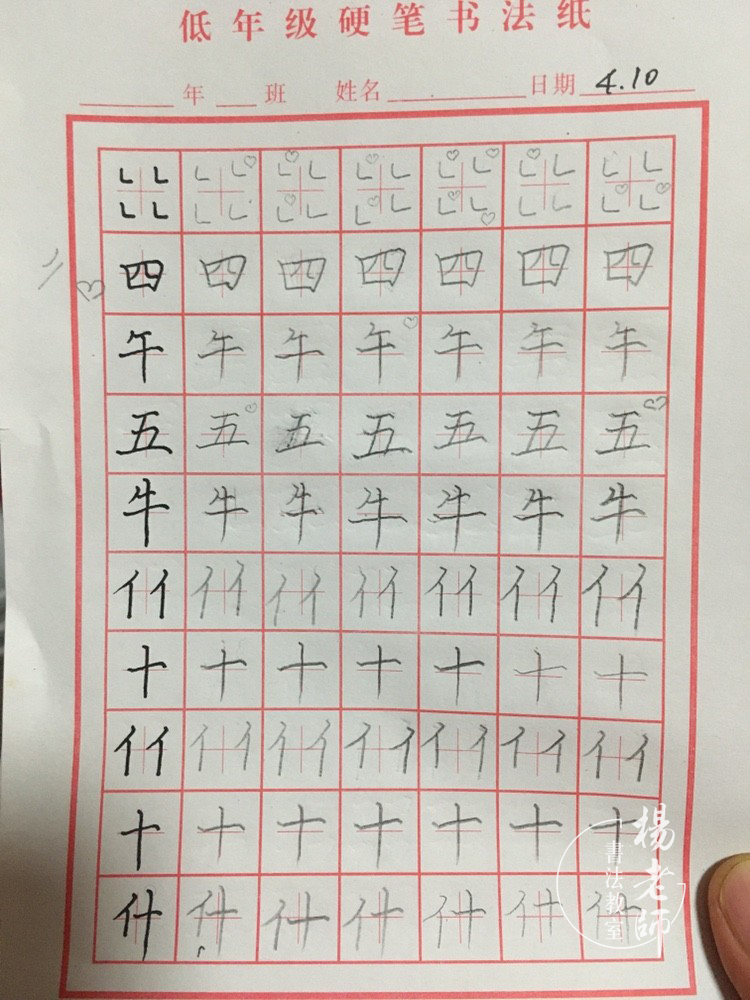 低年级硬笔书法纸
年 班 姓名 日期 4.10
四 四 四 四 四 四 四
午 午 午 午 午 午 午
五 五 五 五 五 五 五
牛 牛 牛 牛 牛 牛 牛
亻亻 亻亻 亻亻 亻亻 亻亻 亻亻 亻亻
十 十 十 十 十 十 十
亻亻 亻亻 亻亻 亻亻 亻亻 亻亻 亻亻
十 十 十 十 十 十 十
什 什 什 什 什 什 什
楊老師
書法教室